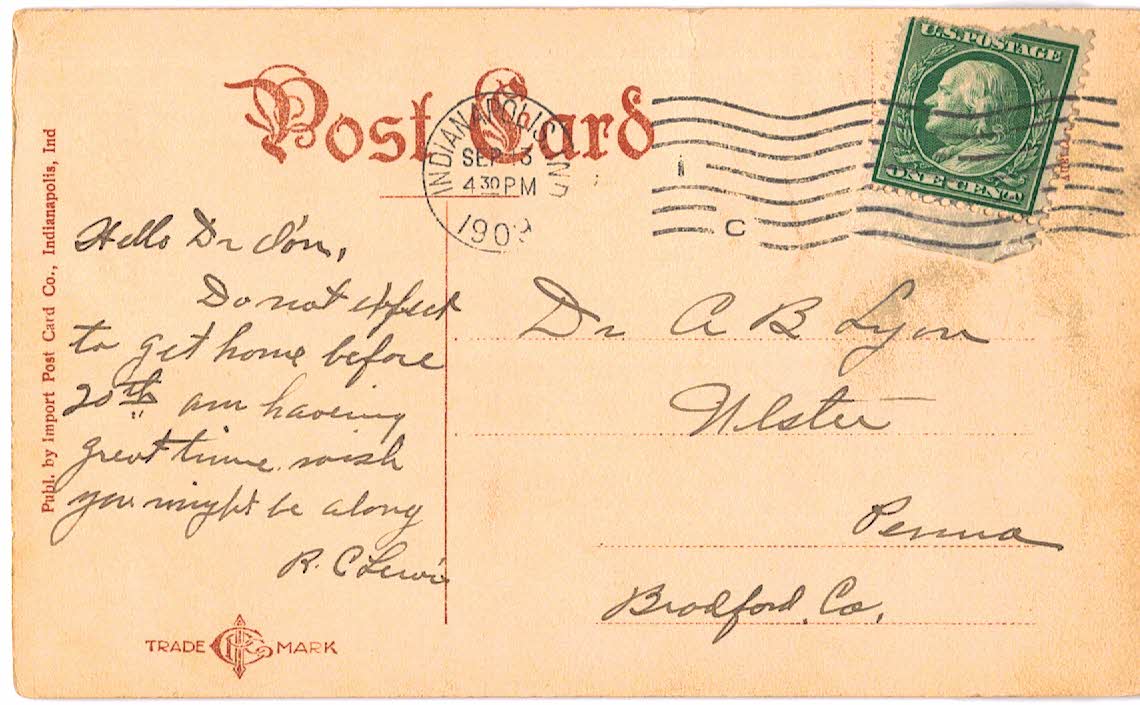 Post Card
U.S. POSTAGE
ONE CENT
INDIANAPOLIS, IND
SEP 3
4 30 PM
1909
C
Publ. by Import Post Card Co., Indianapolis, Ind
Hello Dr
Do not expect
to get home before
20th am having
great time wish
you might be along
R. C Lewis
Dr A B Lyon
Ulster
Penna
Bradford. Co.
TRADE MARK